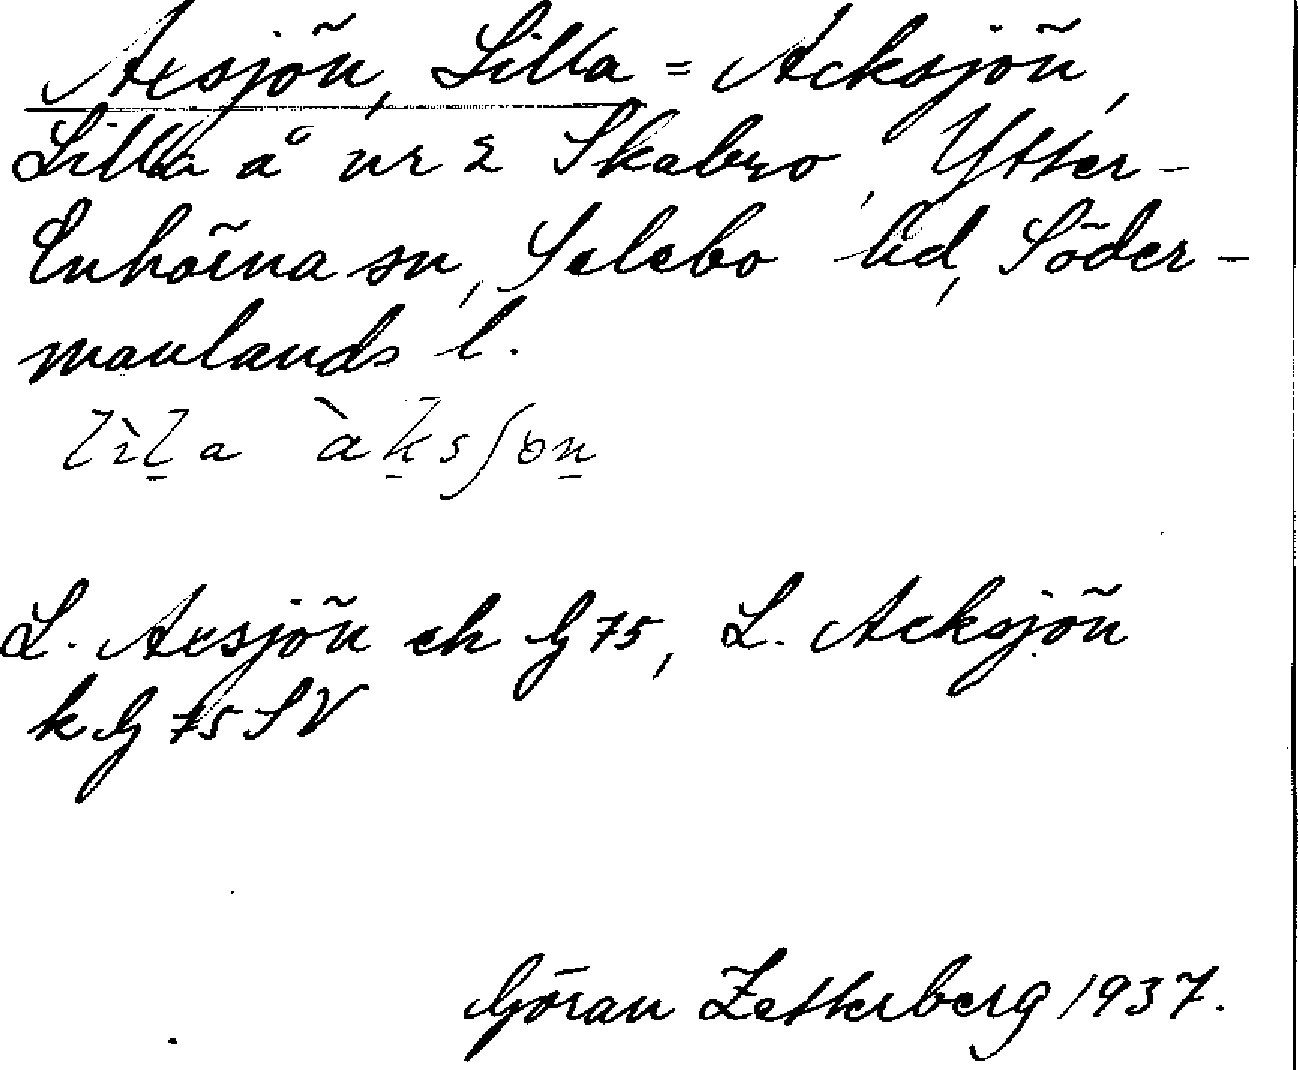 Axsjön, Lilla = Acksjön,
Lilla å nr 2 Skabro, Ytter-
Enhörna sn, Selebo hd, Söder-
manlands l.
lìla àksʃɷn
L. Axsjön ek G 75, L. Acksjön
k G 75 SV
Göran Zetterberg 1937.